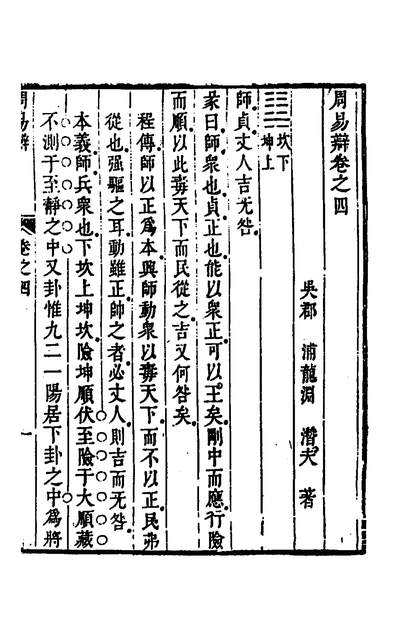 周易辯卷之四
吳郡 浦龍淵 潛夫 著
坎下
坤上
師貞丈人吉无咎
彖曰師衆也貞正也能以衆正可以王矣剛中而應行險
而順以此毒天下而民從之吉又何咎矣
程傳師以正爲本興師動衆以毒天下而不以正民弗
從也强驅之耳動雖正帥之者必丈人則吉而无咎
本義師兵衆也下坎上坤坎險坤順伏至險于大順藏
不測于至靜之中又卦惟九二一陽居下卦之中爲將
周易辯
卷之四
一